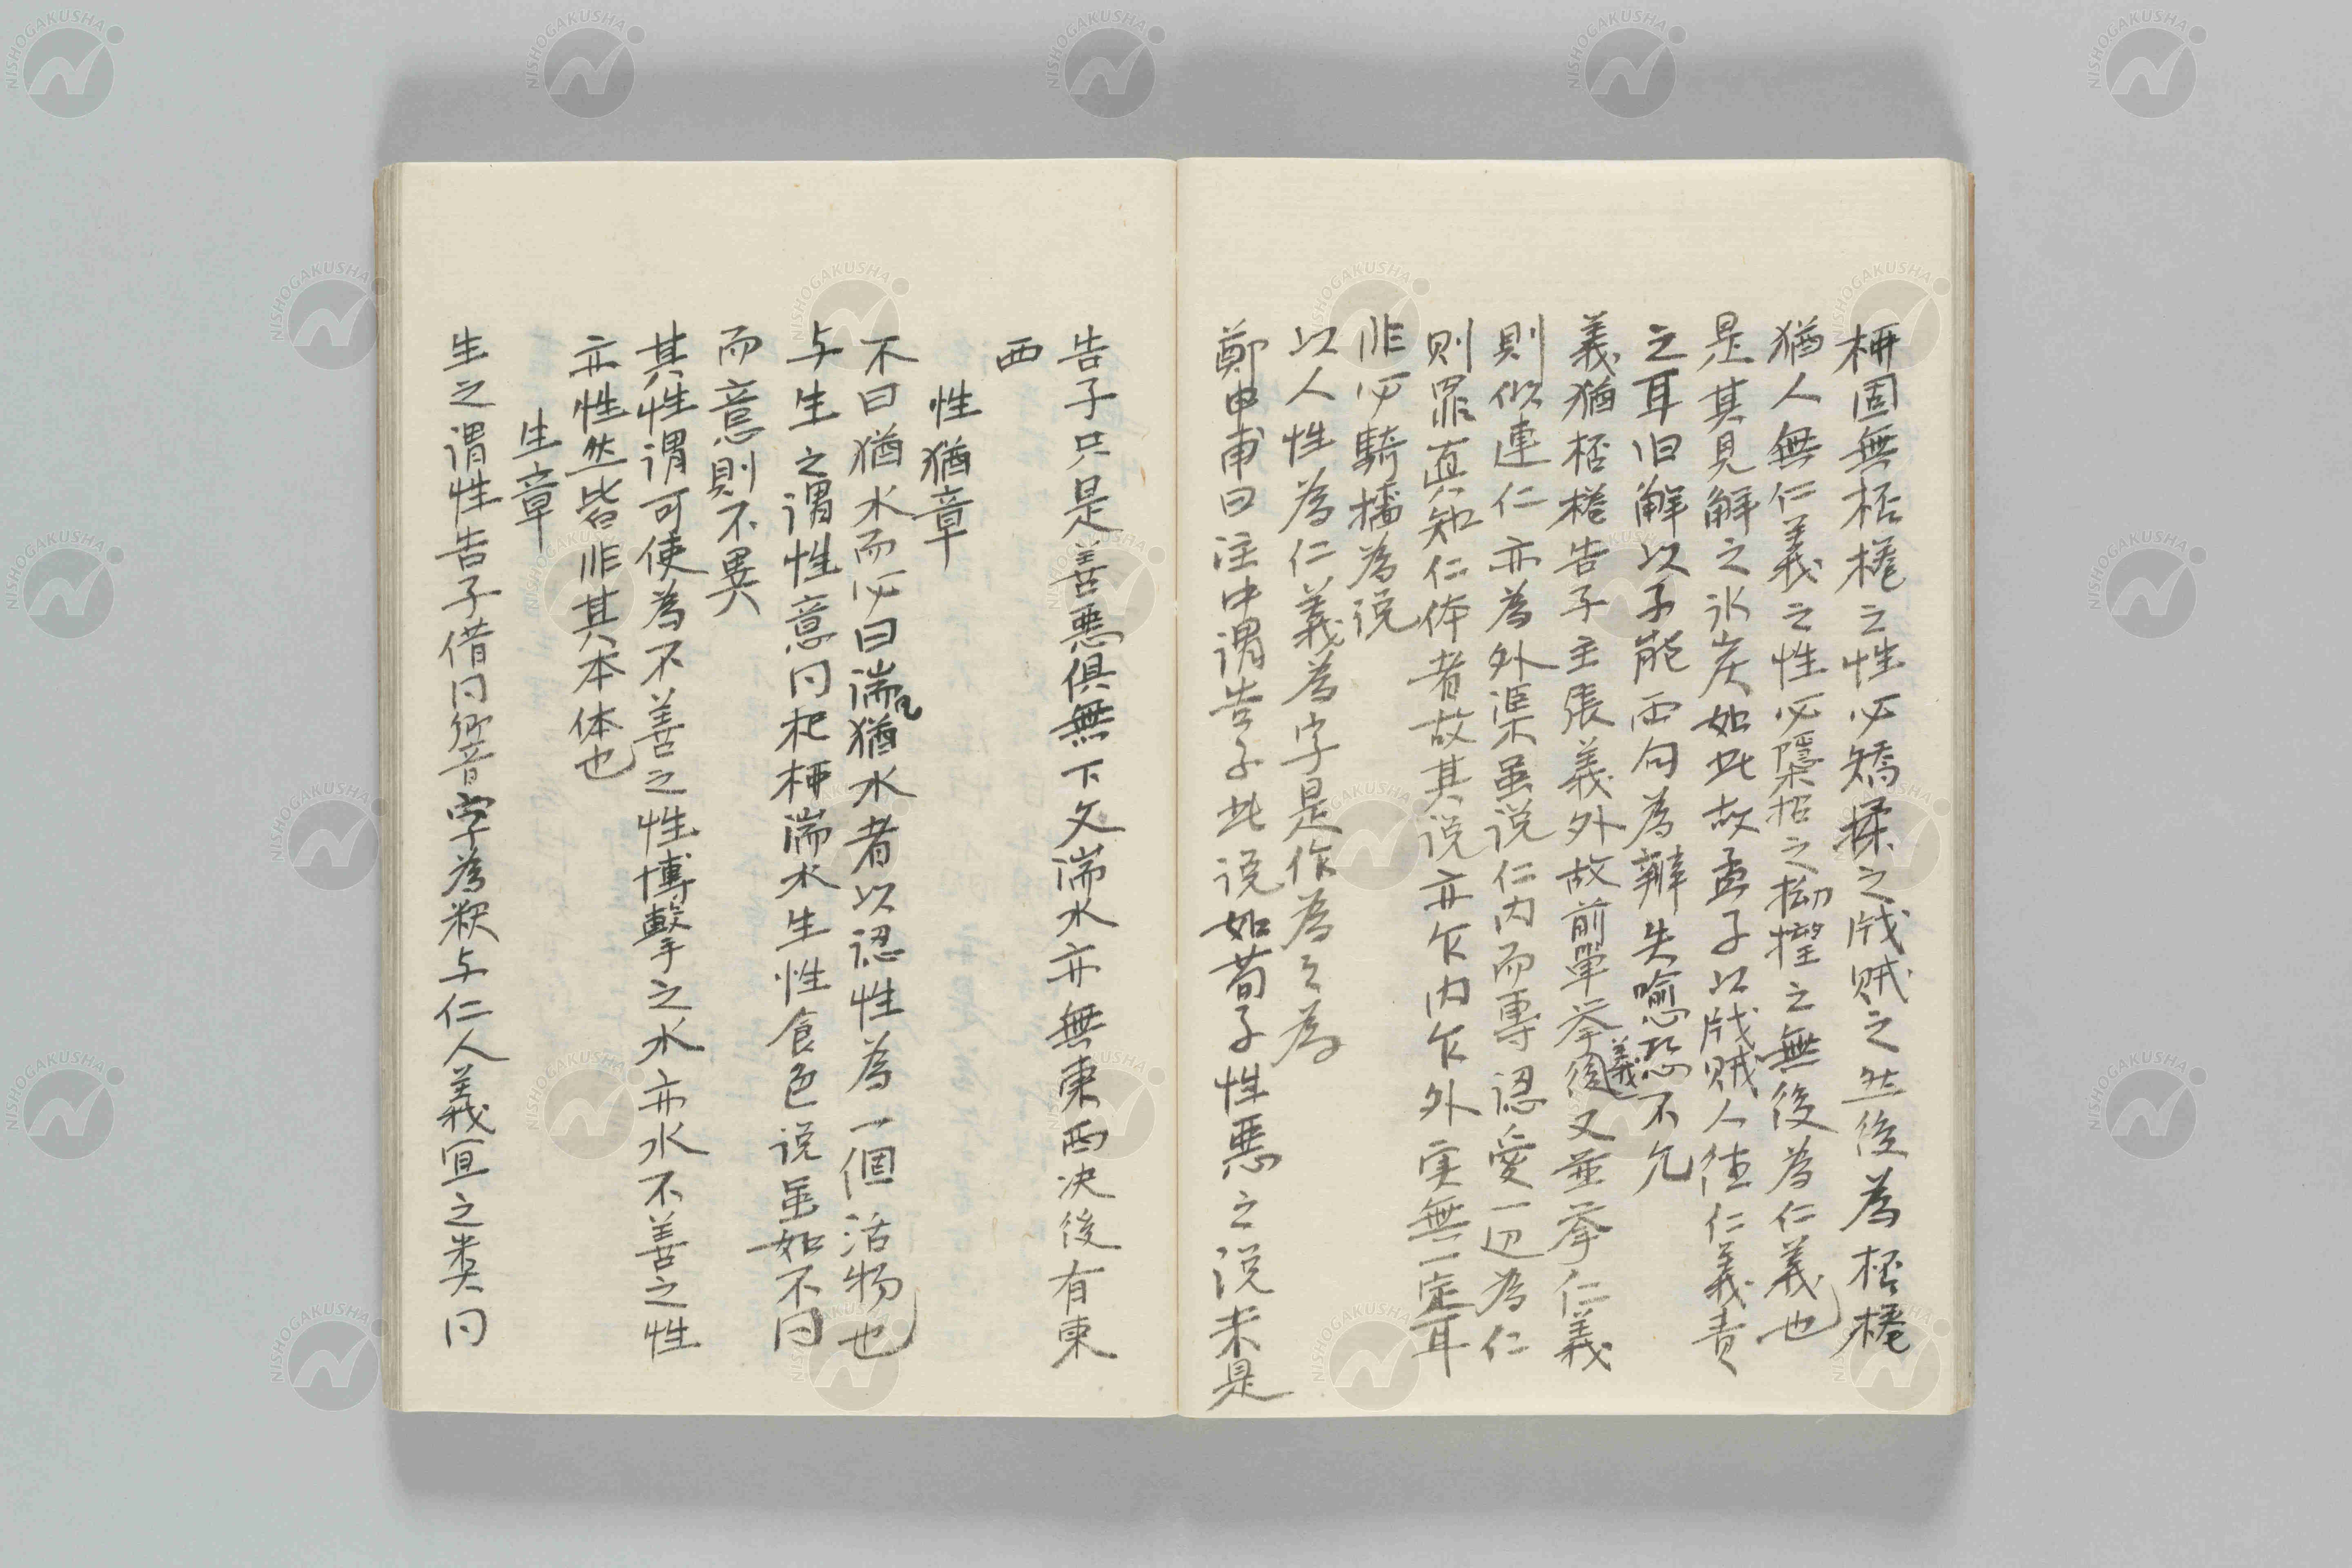 柵固無桮棬之性必矯揉之戕賊之然後為桮棬
猶人無仁義之性必隱括之拗捏之無後為仁義也
是其見解之氷炭如此故孟子以戕賊人禍仁義責
之耳旧解以子能両句為辯失喩恐不允
義猶桮棬告子主張義外故前單挙義後又並挙仁義
則似連仁亦為外渠虽说仁内而専認愛一辺為仁
則罪真知仁体者故其说亦乍内乍外実無一定耳
非必騎墻為说
以人性為仁義為字是作為之為
鄭申甫曰注中謂告子此说如荀子性悪之说未是
告子只是善悪俱無下文湍水亦無東西决後有東
西
性猶章
不曰猶水而必曰湍猶水者以認性為一個活物也
与生之謂性意同杞柳湍水生性食色说虽如不同
而意則不異
其性謂可使為不善之性搏擊之水亦水不善之性
亦性然皆非其本体也
生章
生之謂性告子借同響音字為釈与仁人義宜之类同